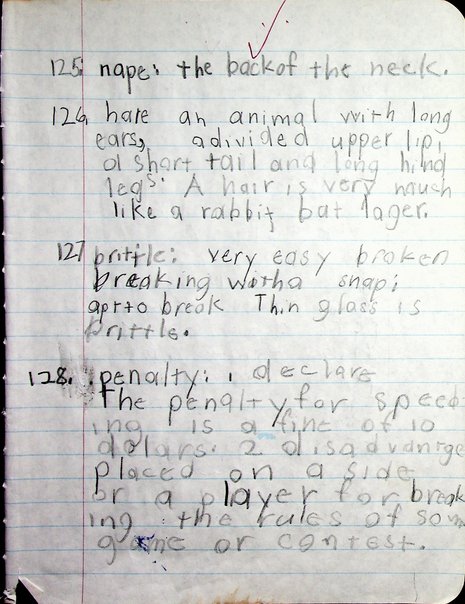 125. nape: the back of the neck.
126 hare an animal with long
ears, a divided upper lip,
a short tail and long hind
legs. A hair is very much
like a rabbit bat lager.
127 brittle: very easy broken
breaking with a snap;
apt to break Thin glass is
brittle.
128. penalty: 1 declare
The penalty for speed-
ing is a fine of 10
dolars. 2 disadvantge
placed on a side
or a player for break
ing the rules of som
game or contest.